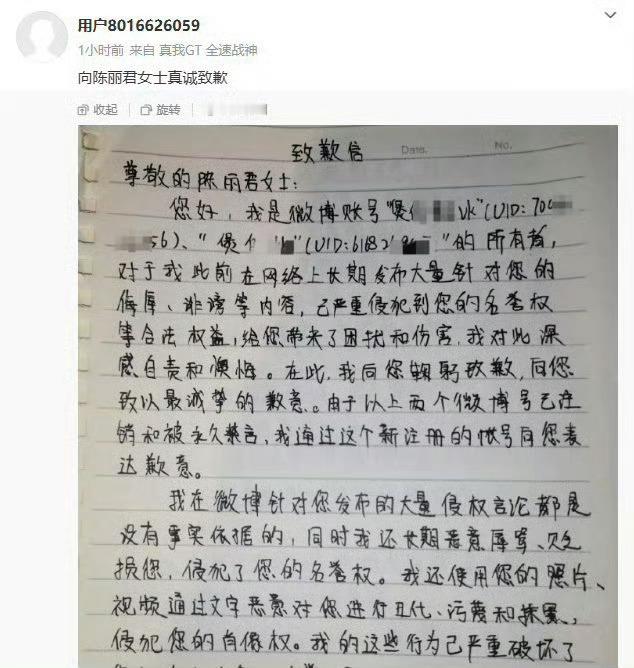 用户8016626059
1小时前 来自 真我GT 全速战神
向陈丽君女士真诚致歉
收起 旋转
致歉信 Date. No.
尊敬的陈丽君女士:
您好,我是微博账号"煲 vk"(UID:700
56)、"煲 "(UID:61821 "的所有者,
对于我此前在网络上长期发布大量针对您的
侮辱、诽谤等内容,已严重侵犯到您的名誉权
等合法权益,给您带来了困扰和伤害,我对此深
感自责和懊悔。在此,我向您鞠躬致歉,向您
致以最诚挚的歉意。由于以上两个微博号已注
销和被永久禁言,我通过这个新注册的帐号向您表
达歉意。
我在微博针对您发布的大量侵权言论都是
没有事实依据的,同时我还长期恶意辱骂、贬
损您,侵犯了您的名誉权。我还使用您的照片、
视频通过文字恶意对您进行丑化、污蔑和抹黑,
侵犯您的肖像权。我的这些行为已严重破坏了